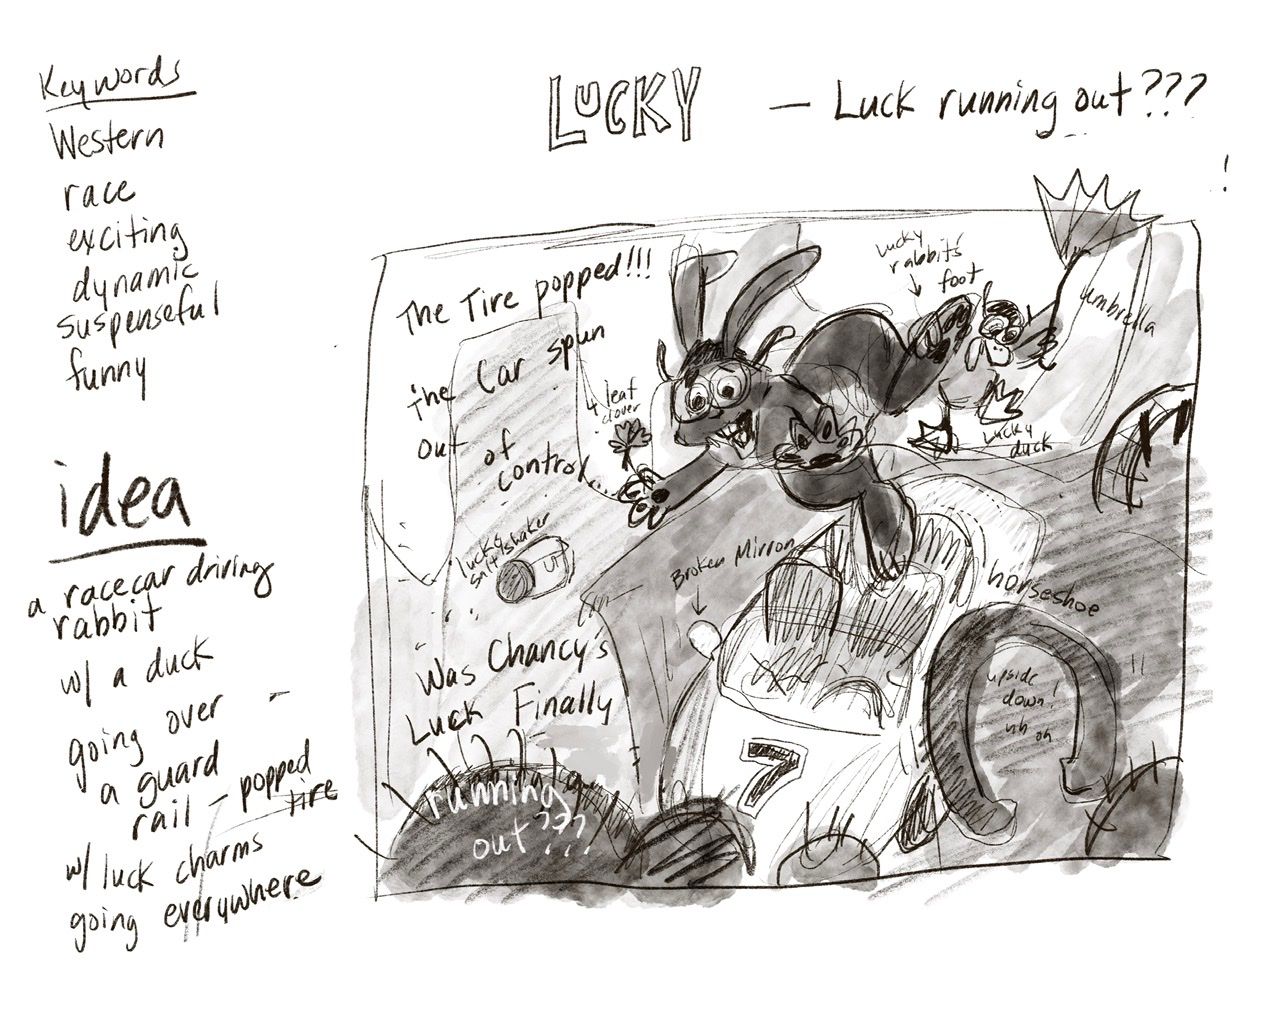 Keywords
Western
race
exciting
dynamic
suspenseful
funny
idea
a racecar driving
rabbit
w/ a duck
going over -
a guard
rail - popped
tire
w/ luck charms
going everywhere
LUCKY - Luck running out???
!
The Tire popped!!!
the Car spun
out of
control...
4 leaf
clover
lucky
rabbits'
foot
umbrella
lucky
duck
lucky
saltshaker
Broken Mirror
horseshoe
upside
down!
uh oh
7
Was Chancy's
Luck Finally
running
out???